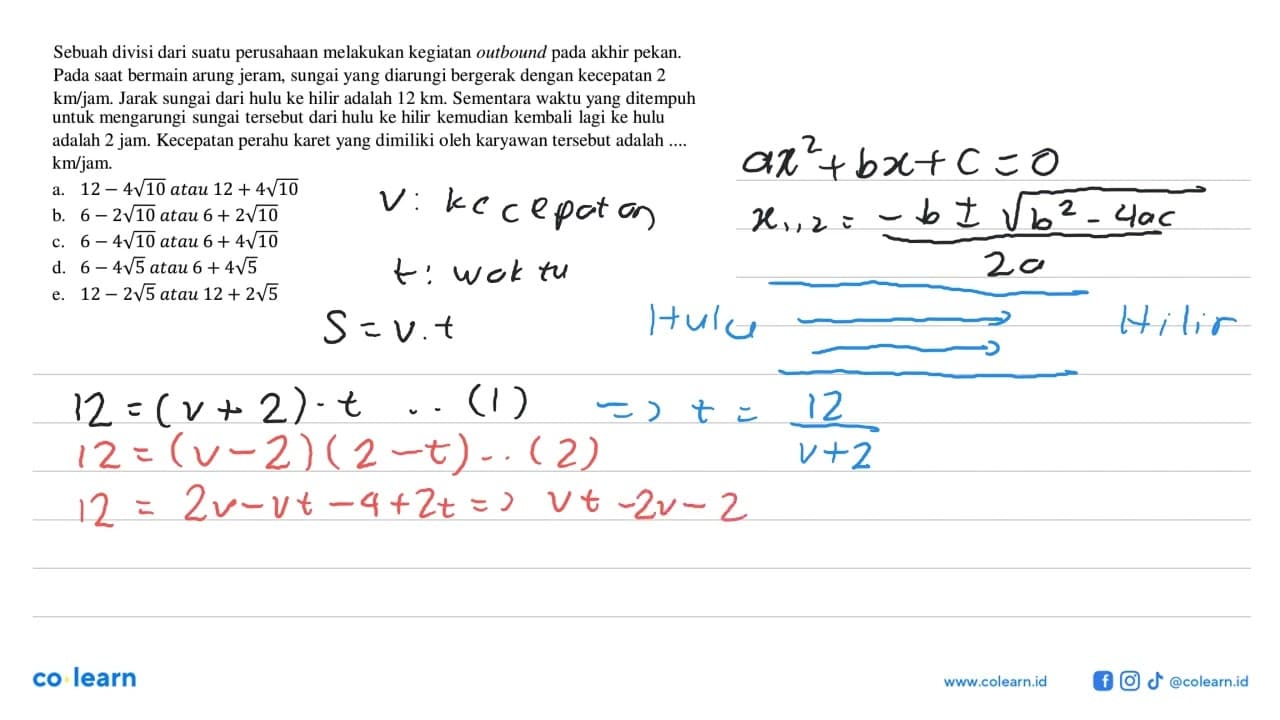 Sebuah divisi dari suatu perusahaan melakukan kegiatan outbound pada akhir pekan.
Pada saat bermain arung jeram, sungai yang diarungi bergerak dengan kecepatan 2
km/jam. Jarak sungai dari hulu ke hilir adalah 12 km. Sementara waktu yang ditempuh
untuk mengarungi sungai tersebut dari hulu ke hilir kemudian kembali lagi ke hulu
adalah 2 jam. Kecepatan perahu karet yang dimiliki oleh karyawan tersebut adalah ....
km/jam.
a. 12 − 4√10 atau 12 + 4√10
b. 6 − 2√10 atau 6 + 2√10
c. 6 − 4√10 atau 6 + 4√10
d. 6 − 4√5 atau 6 + 4√5
e. 12 − 2√5 atau 12 + 2√5
ax² + bx + c = 0
x₁,₂ = (−b ± √(b² − 4ac))/2a
v : kecepatan
t : waktu
S = v . t
Hulu
Hilir
12 = (v + 2) · t .. (1) => t = 12/(v+2)
12 = (v − 2)(2 − t) .. (2)
12 = 2v − vt − 4 + 2t => vt − 2v − 2
co learn
www.colearn.id
@colearn.id